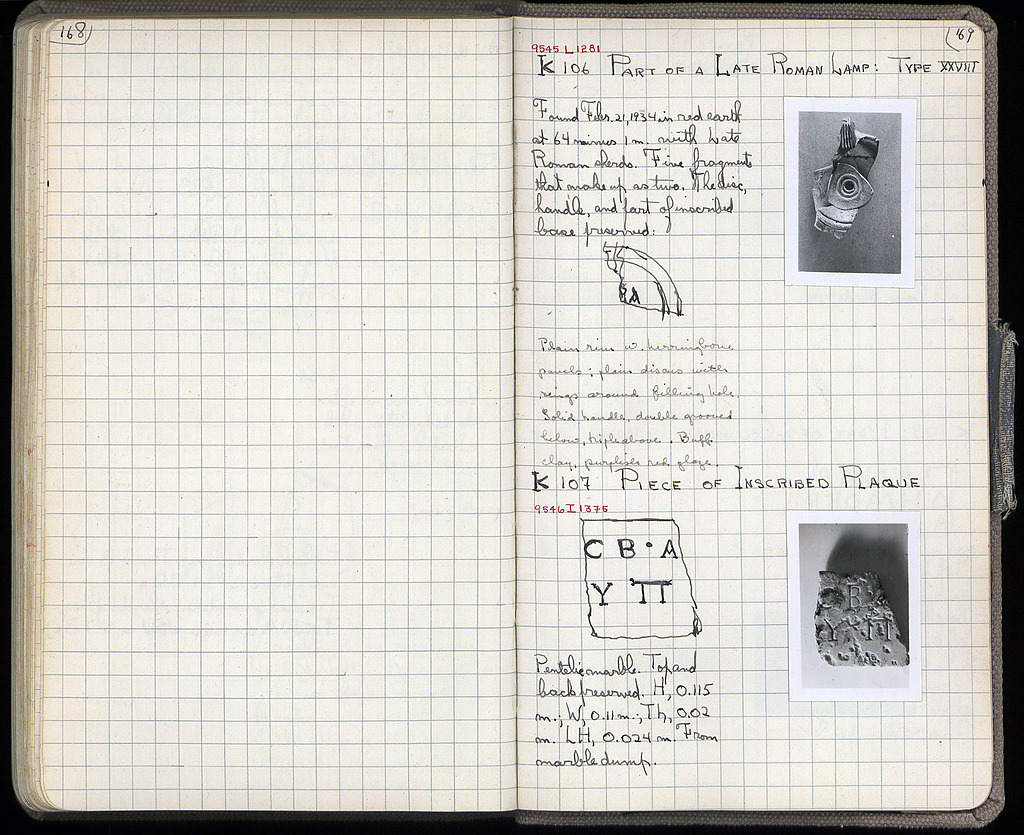 168
169
9545 L 1281
K 106 PART OF A LATE ROMAN LAMP: TYPE XXVIII
Found Feb. 21, 1934 in red earth
at 64 minus 1 m. with Late
Roman sherds. Five fragments
that make up as two. The disc,
handle, and part of inscribed
base preserved:
A
Plain rim w. herringbone
panels; plain discus with
rings around filling hole.
Solid handle, double grooved
below, triple above. Buff
clay, purplish red glaze.
K 107 PIECE OF INSCRIBED PLAQUE
9546 I 1375
C B · A
Y Π
B
Y Π
Pentelic marble. Top and
back preserved. H, 0.115
m.; W, 0.11 m.; Th, 0.02
m. LH, 0.024 m. From
marble dump.